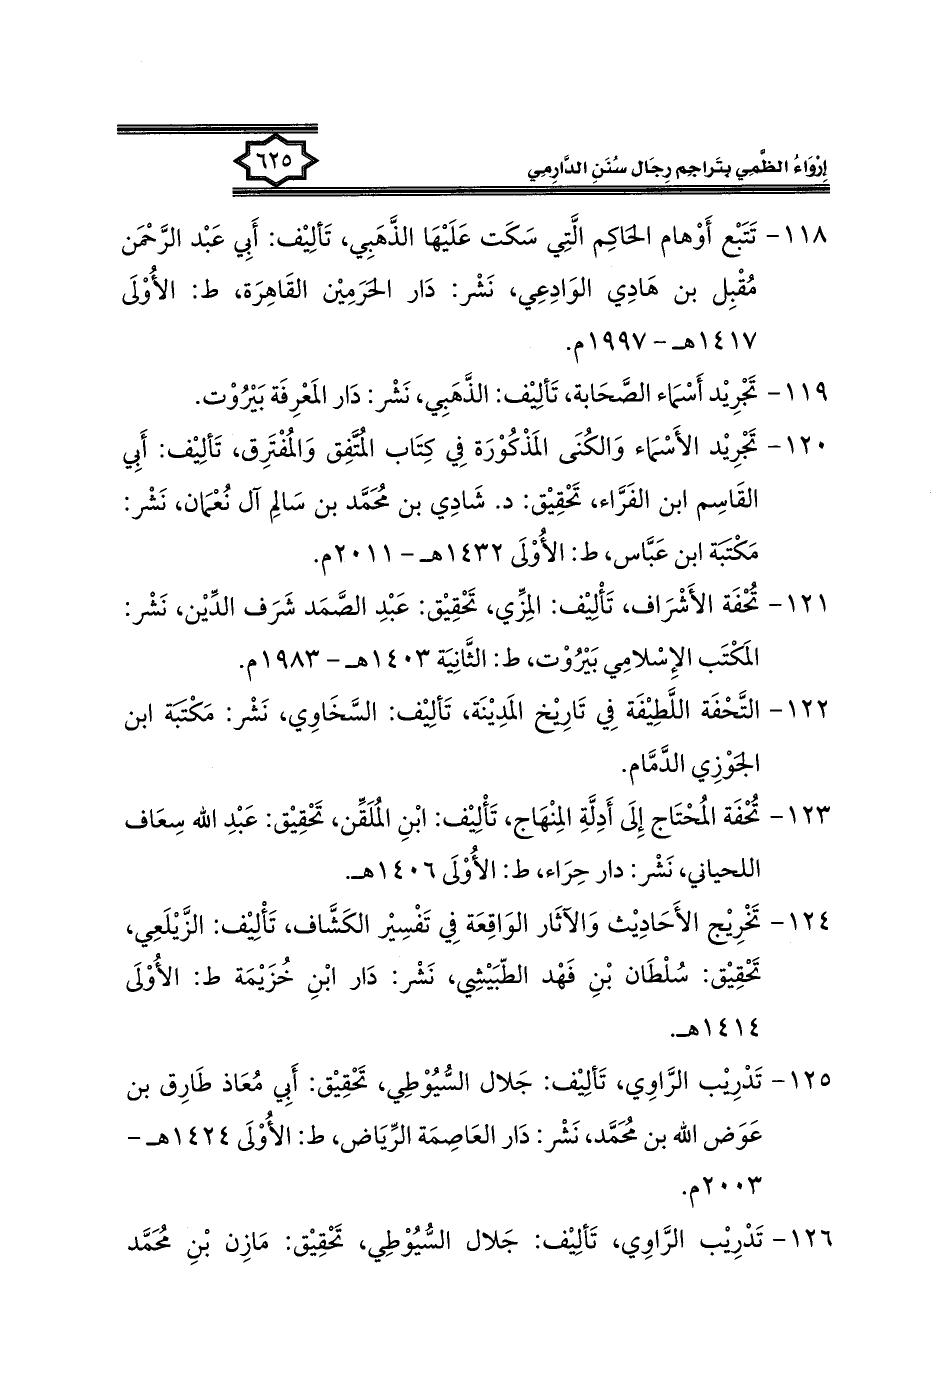 إِرْوَاءُ الظَّمِي بِتَراجم رِجَال سُنَنِ الدَّارِمِي
٦٢٥
١١٨- تَتَبْع أَوْهام الحَاكِم الَّتِي سَكَت عَلَيْهَا الذَّهَبِي، تَألِيْف: أَبِي عَبْد الرَّحْمَن
مُقْبِل بن هَادِي الوَادِعِي، نَشْر: دَار الحَرَمِيْن القَاهِرَة، ط: الأُوْلَى
١٤١٧هـ - ١٩٩٧م.
١١٩- تَجْرِيْد أَسْمَاء الصَّحَابة، تَألِيْف: الذَّهَبِي، نَشْر: دَار المَعْرِفَة بَيْرُوْت.
١٢٠- تَجْرِيْد الأَسْمَاء وَالكُنَى المَذْكُوْرَة فِي كِتَاب المُتَّفِق وَالمُفْتَرِق، تَألِيْف: أَبِي
القَاسِم ابن الفَرَّاء، تَحْقِيْق: د. شَادِي بن مُحَمَّد بن سَالِم آل نُعْمَان، نَشْر:
مَكْتَبَة ابن عَبَّاس، ط: الأُوْلَى ١٤٣٢هـ - ٢٠١١م.
١٢١- تُحْفَة الأَشْرَاف، تَألِيْف: المِزِّي، تَحْقِيْق: عَبْدِ الصَّمَد شَرَف الدِّيْن، نَشْر:
المَكْتَب الإِسْلامِي بَيْرُوْت، ط: الثَّانِيَة ١٤٠٣هـ - ١٩٨٣م.
١٢٢- التَّحْفَة اللَّطِيْفَة فِي تَارِيْخ المَدِيْنَة، تَألِيْف: السَّخَاوِي، نَشْر: مَكْتَبَة ابن
الجَوْزِي الدَّمَّام.
١٢٣- تُحْفَة المُحْتَاج إِلَى أَدِلَّةِ المِنْهَاج، تَأْلِيْف: ابْنِ المُلَقِّن، تَحْقِيْق: عَبْدِ الله سِعَاف
اللحياني، نَشْر: دار حِرَاء، ط: الأُوْلَى ١٤٠٦هـ.
١٢٤- تَخْرِيْج الأَحَادِيْث وَالآثَار الوَاقِعَة فِي تَفْسِيْر الكَشَّاف، تَأْلِيْف: الزَّيْلَعِي،
تَحْقِيْق: سُلْطَان بْنِ فَهْد الطَّبَيْشِي، نَشْر: دَار ابْنِ خُزَيْمَة ط: الأُوْلَى
١٤١٤هـ.
١٢٥- تَدْرِيْب الرَّاوِي، تَألِيْف: جَلال السُّيُوْطِي، تَحْقِيْق: أَبِي مُعَاذ طَارِق بن
عَوَض الله بن مُحَمَّد، نَشْر: دَار العَاصِمَة الرِّيَاض، ط: الأُوْلَى ١٤٢٤هـ -
٢٠٠٣م.
١٢٦- تَدْرِيْب الرَّاوِي، تَألِيْف: جَلال السُّيُوْطِي، تَحْقِيْق: مَازِن بْنِ مُحَمَّد